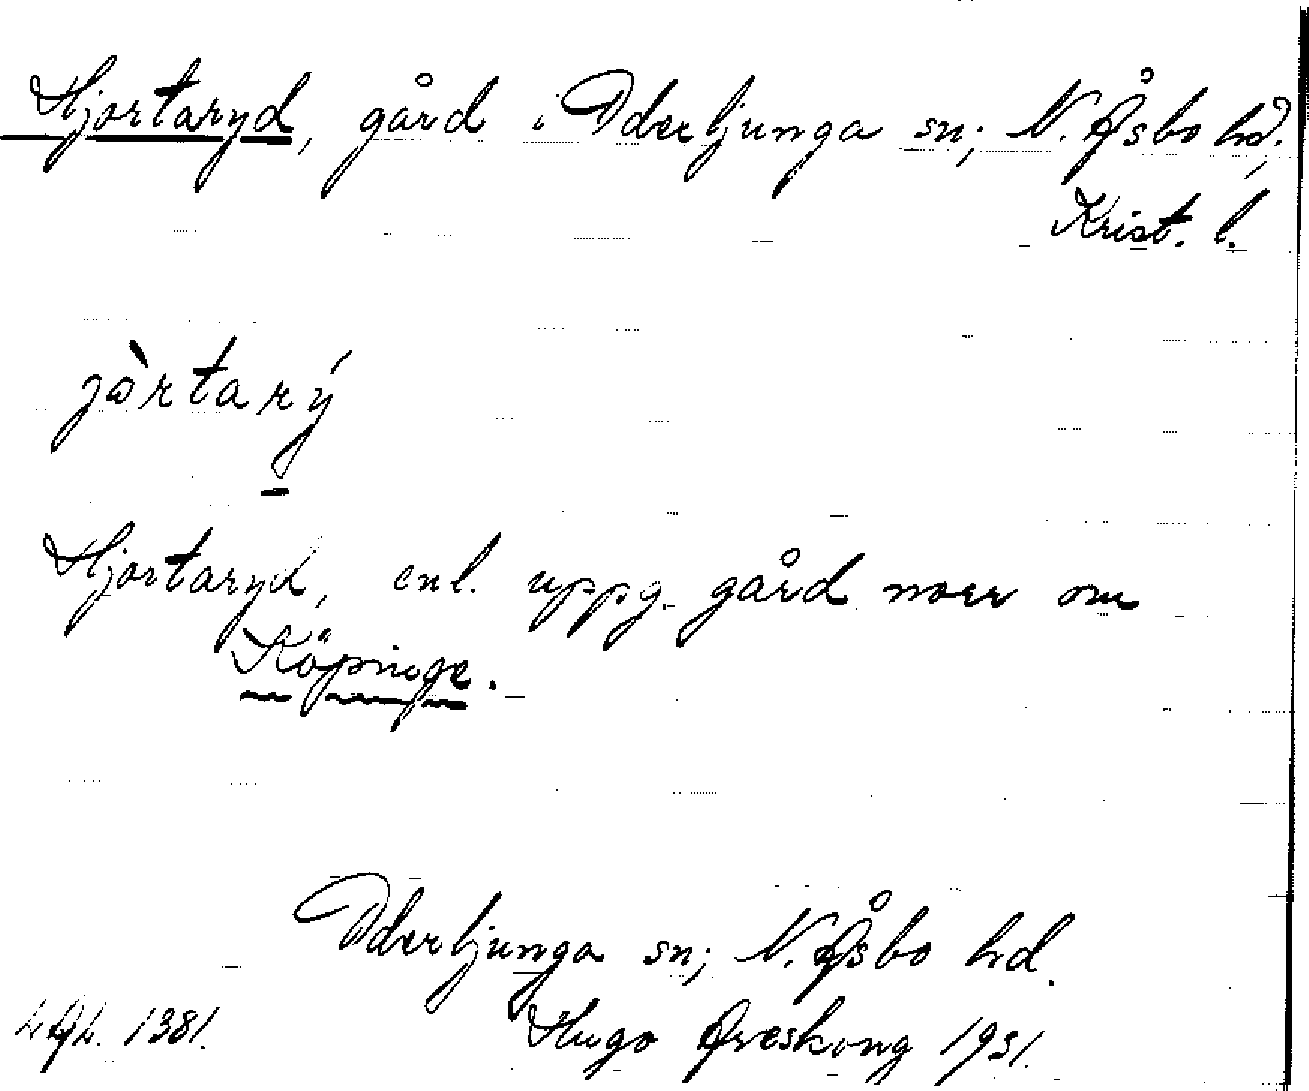 Hjortaryd, gård i Oderljunga sn; N. Åsbo hd,
Krist. l.
jòrtarý
Hjortaryd, enl. uppg. gård norr om
Köpinge.
Oderljunga sn; N. Åsbo hd.
Hugo Areskoug 1931.
1381.